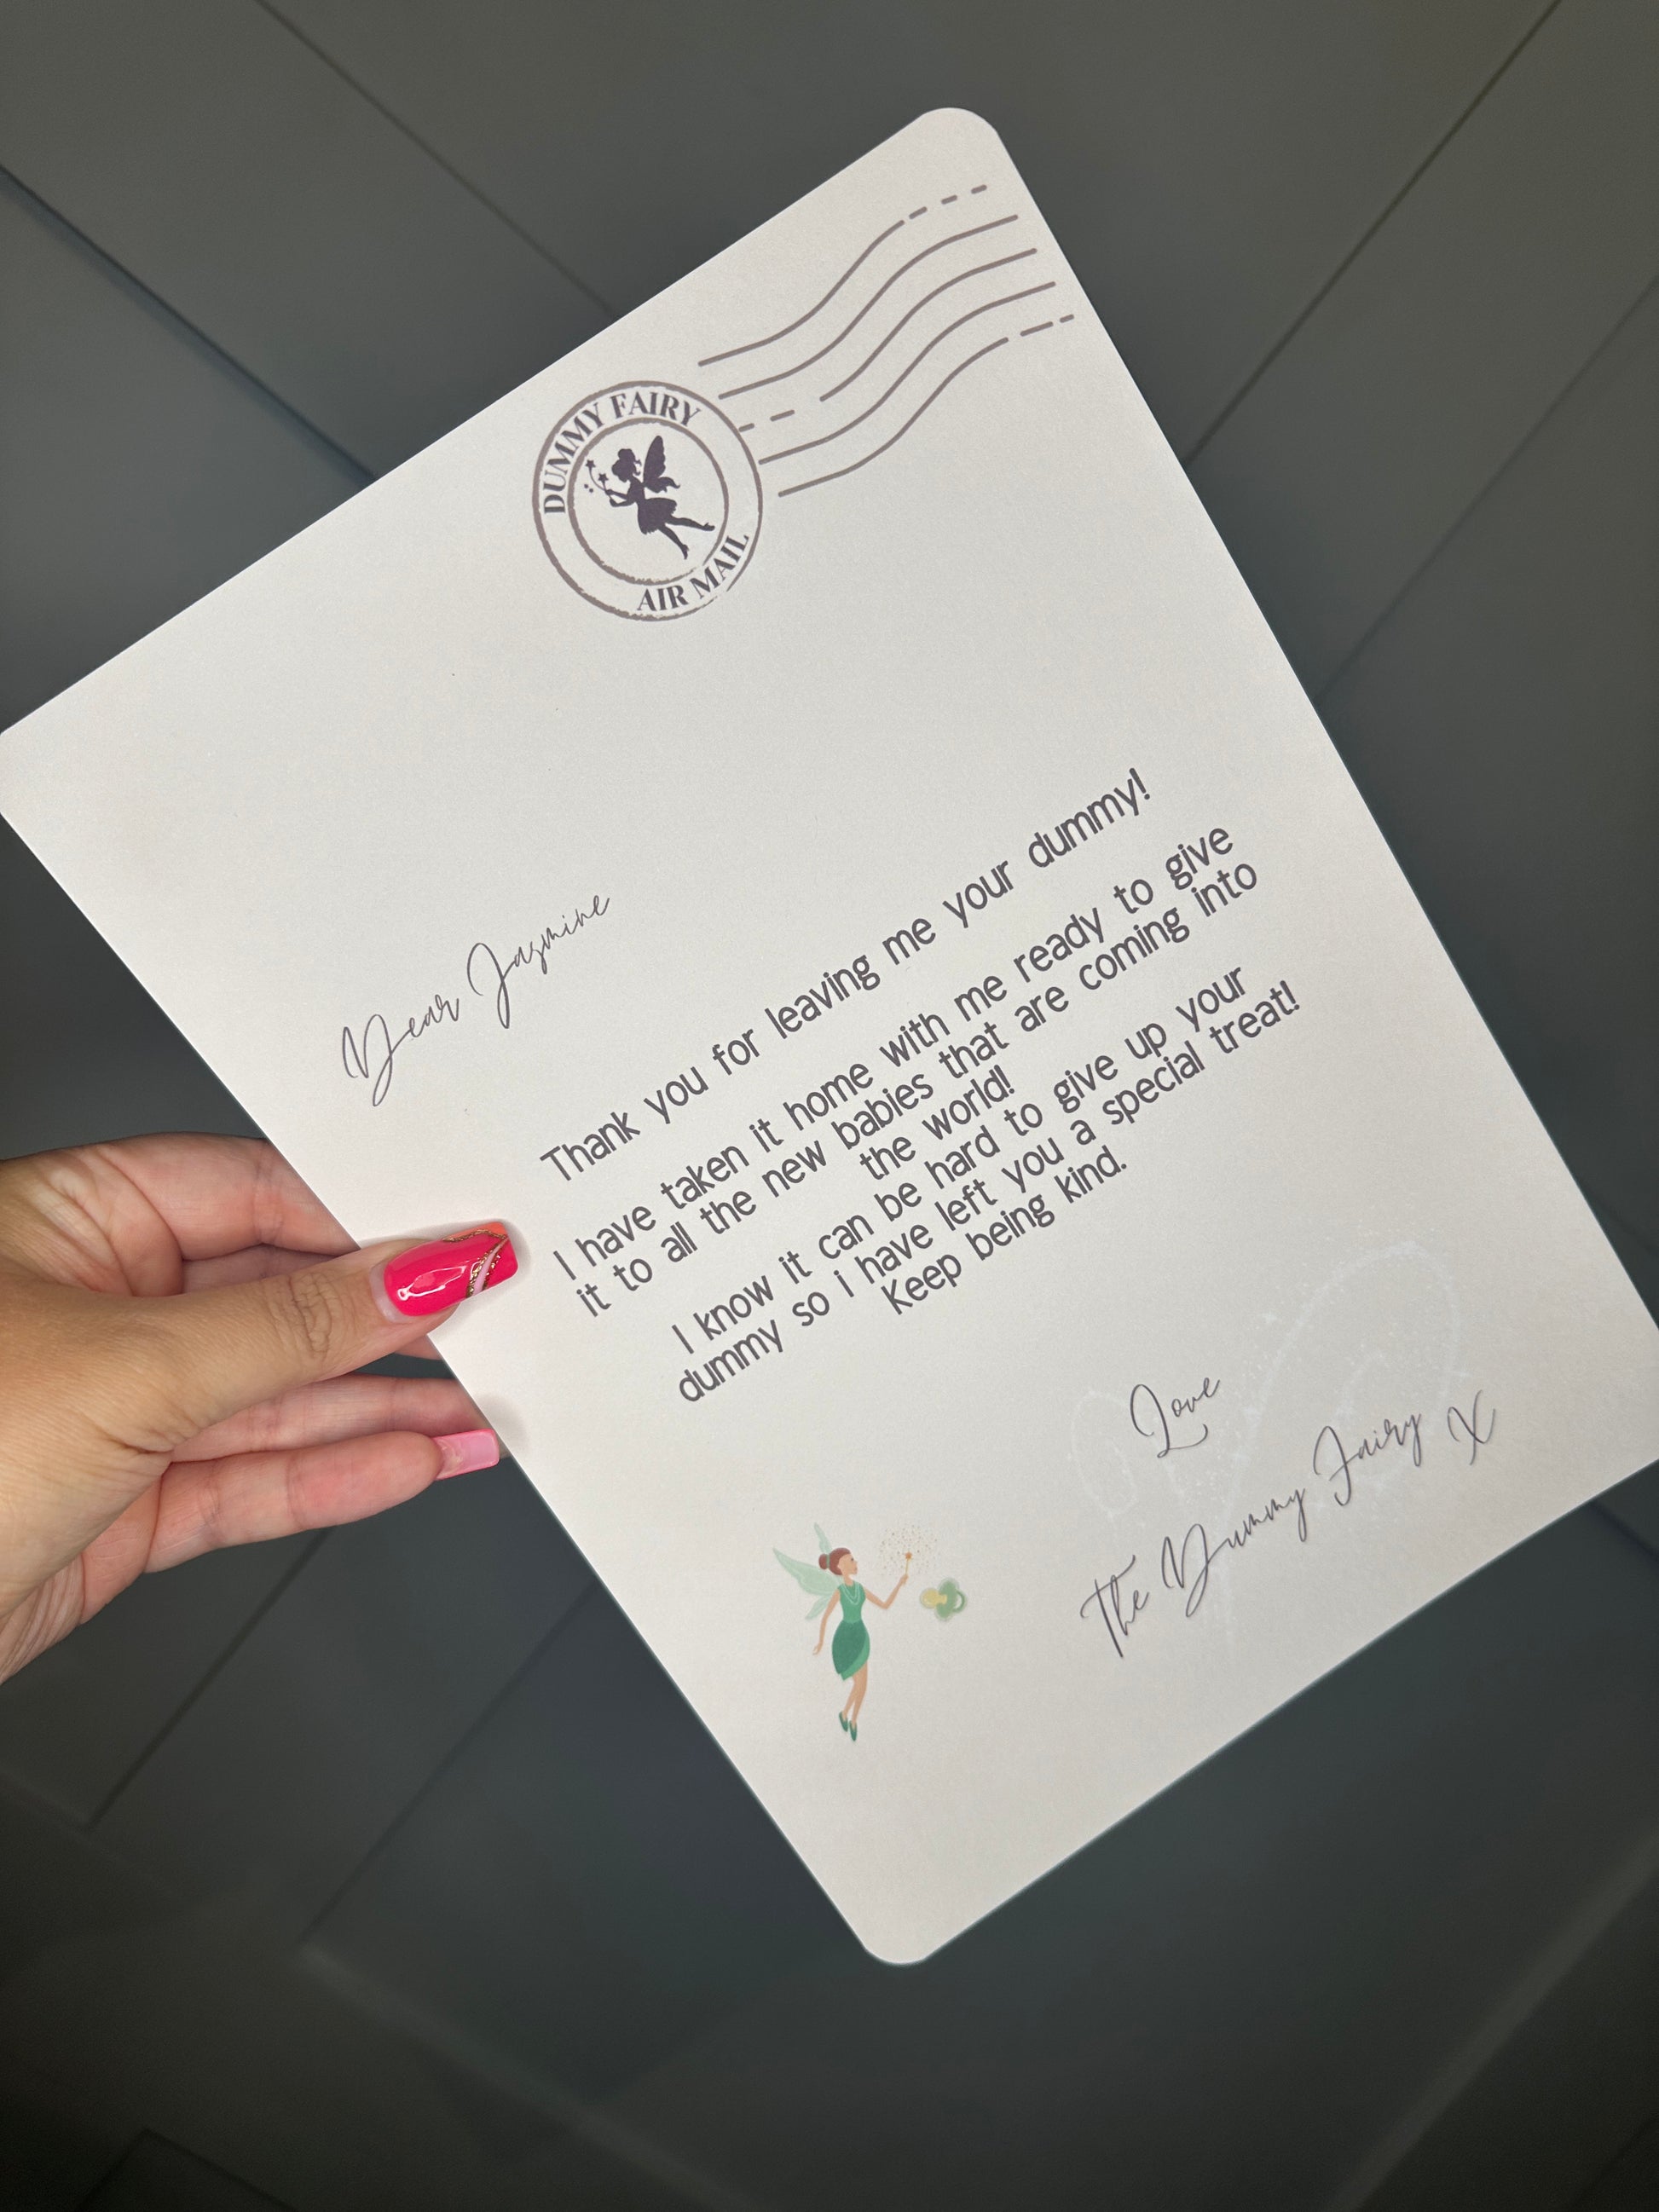 DUMMY FAIRY
AIR MAIL
Dear Jasmine
Thank you for leaving me your dummy!
I have taken it home with me ready to give
it to all the new babies that are coming into
the world!
I know it can be hard to give up your
dummy so i have left you a special treat!
Keep being kind.
Love
The Dummy Fairy X